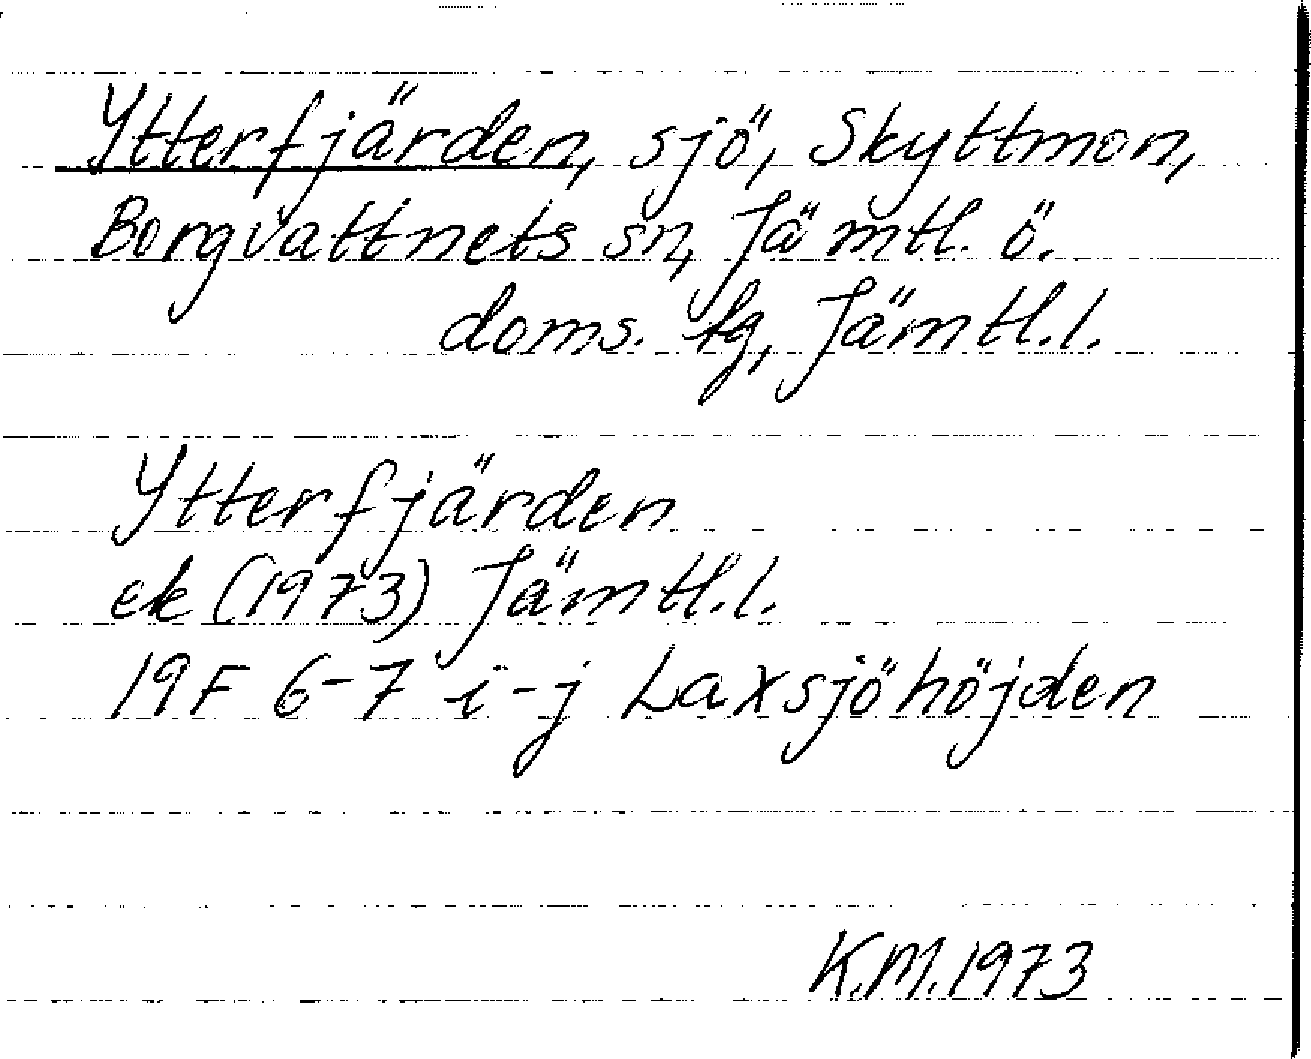 Ytterfjärden, sjö, Skyttmon,
Borgvattnets sn, Jämtl. ö.
doms. tg, Jämtl.l.
Ytterfjärden
ek (1973) Jämtl.l.
19F 6-7 i-j Laxsjöhöjden
K.M.1973